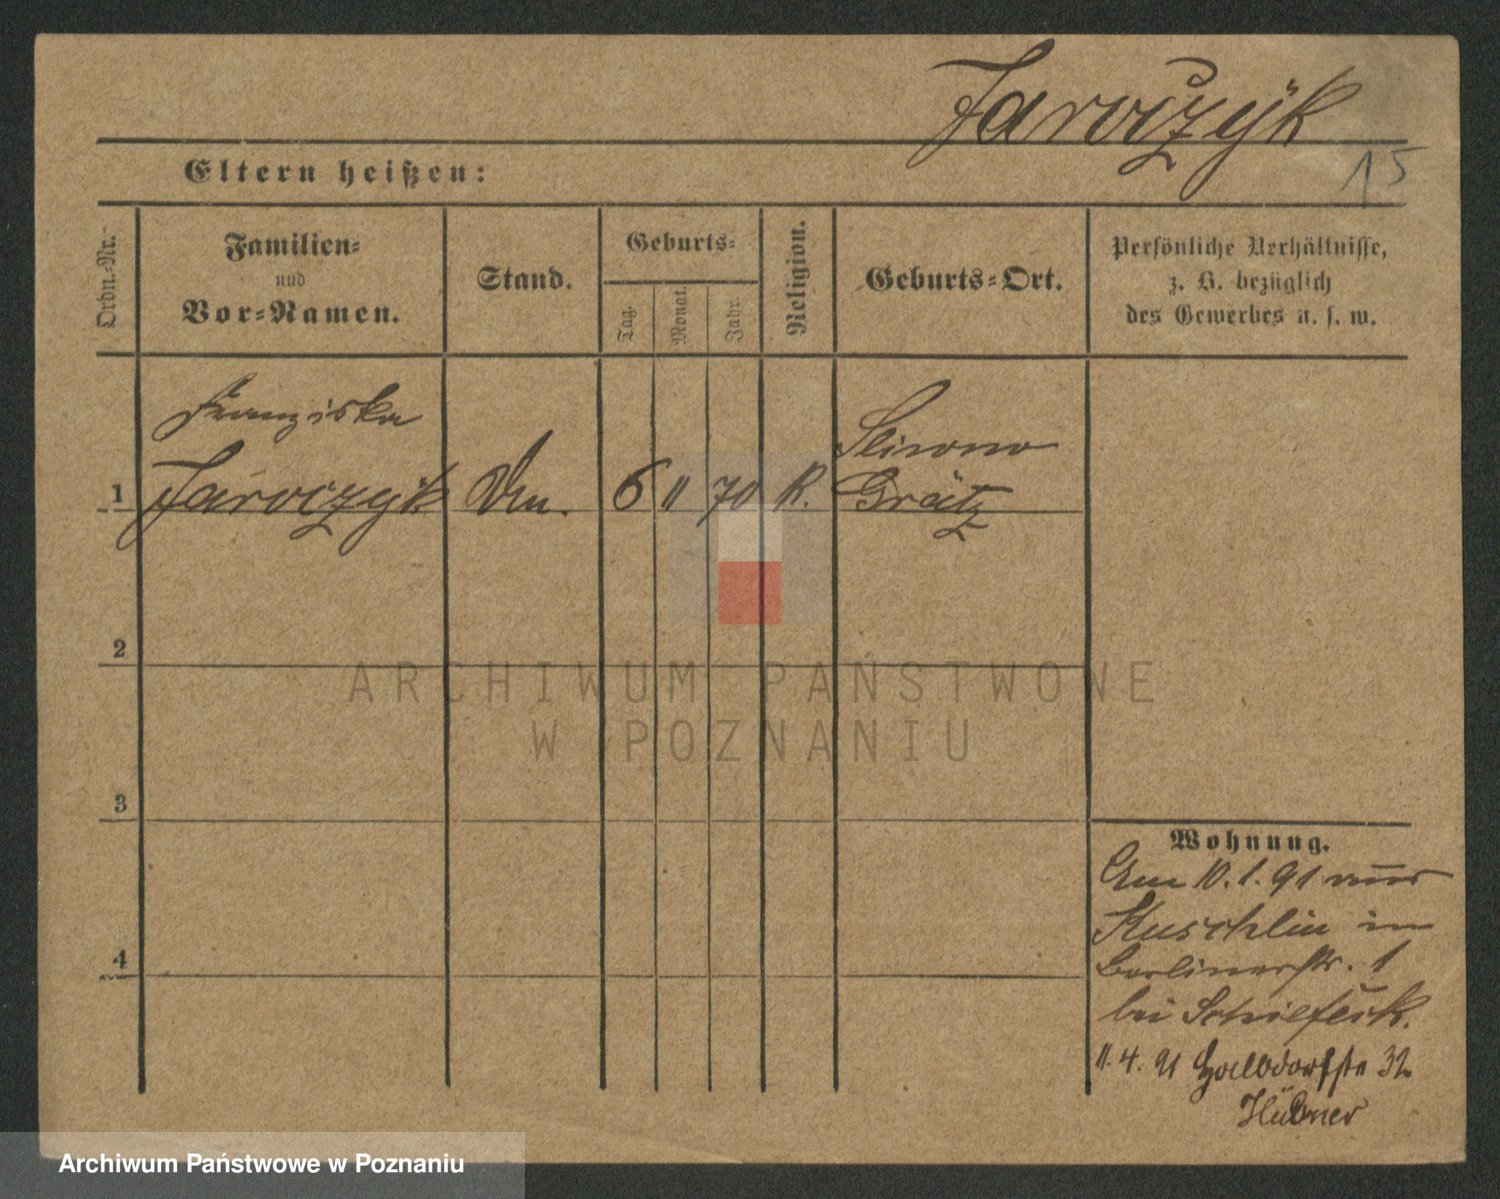 Jaroczyk
15
Eltern heißen:
Ordn.-Nr.
Familien-
und
Vor-Namen.
Stand.
Geburts-
Tag.
Monat.
Jahr.
Religion.
Geburts-Ort.
Persönliche Verhältnisse,
z. B. bezüglich
des Gewerbes u. s. w.
Franziska
Sliwno
1 Jaroczyk 6 11 70 K. Grätz
2
3
4
Wohnung.
Am 10.1.91 aus
Kuschlin in
Berlinerstr. 1
bei
11.4.91 Halbdorfstr 32
Hübner
ARCHIWUM PAŃSTWOWE
W POZNANIU
Archiwum Państwowe w Poznaniu